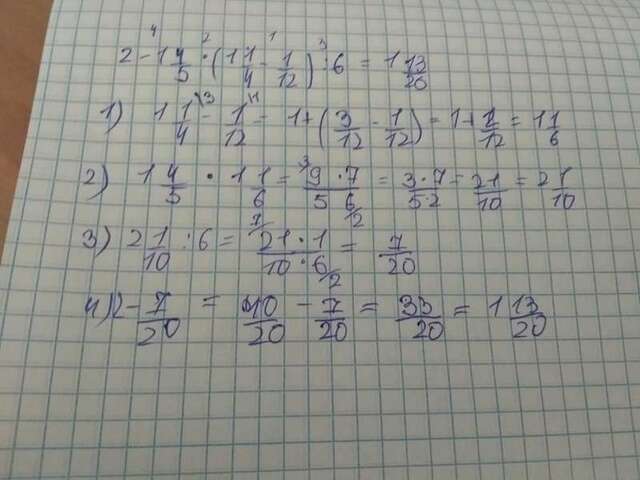 2 - 1 4/5 · (1 1/4 - 1/12) : 6 = 1 13/20
1) 1 1/4 - 1/12 = 1 + (3/12 - 1/12) = 1 + 2/12 = 1 1/6
2) 1 4/5 · 1 1/6 = 9·7/5 6 = 3·7/5 2 = 21/10 = 2 1/10
3) 2 1/10 : 6 = 21·1/10·6 = 7/20
4) 2 - 7/20 = 40/20 - 7/20 = 33/20 = 1 13/20